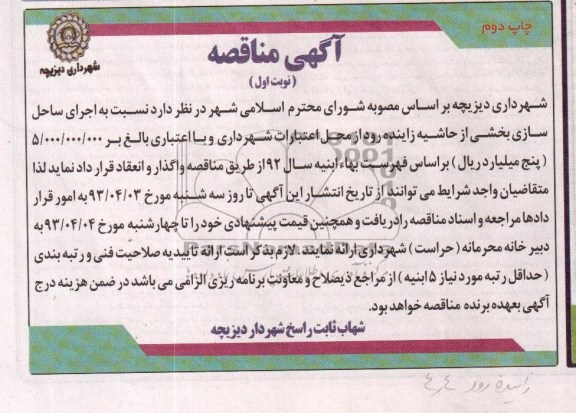 چاپ دوم
آگهی مناقصه
(نوبت اول)
شهرداری دیزیچه
شهرداری دیزیچه بر اساس مصوبه شورای محترم اسلامی شهر در نظر دارد نسبت به اجرای ساحل
سازی بخشی از حاشیه زاینده رود از محل اعتبارات شهرداری و با اعتباری بالغ بر ۵/۰۰۰/۰۰۰/۰۰۰
( پنج میلیارد ریال ) بر اساس فهرست بهاء ابنیه سال ۹۲ از طریق مناقصه واگذار و انعقاد قرار داد نماید لذا
متقاضیان واجد شرایط می توانند از تاریخ انتشار این آگهی تا روز سه شنبه مورخ ۹۳/۰۴/۰۳ به امور قرار
دادها مراجعه و اسناد مناقصه را دریافت و همچنین قیمت پیشنهادی خود را تا چهارشنبه مورخ ۹۳/۰۴/۰۴ به
دبیر خانه محرمانه ( حراست ) شهرداری ارائه نمایند . لازم بذکر است ارائه تاییدیه صلاحیت فنی و رتبه بندی
(حداقل رتبه مورد نیاز ۵ ابنیه ) از مراجع ذیصلاح و معاونت برنامه ریزی الزامی می باشد در ضمن هزینه درج
آگهی بعهده برنده مناقصه خواهد بود.
شهاب ثابت راسخ شهردار دیزیچه
زاینده رود